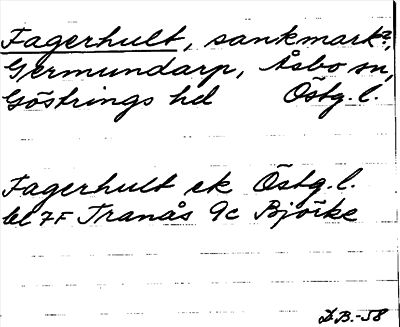 Fagerhult, sankmark?,
Germundarp, Åsbo sn,
Göstrings hd Östg. l.
Fagerhult ek Östg. l.
bl 7F Tranås 9c Björke
B.-58